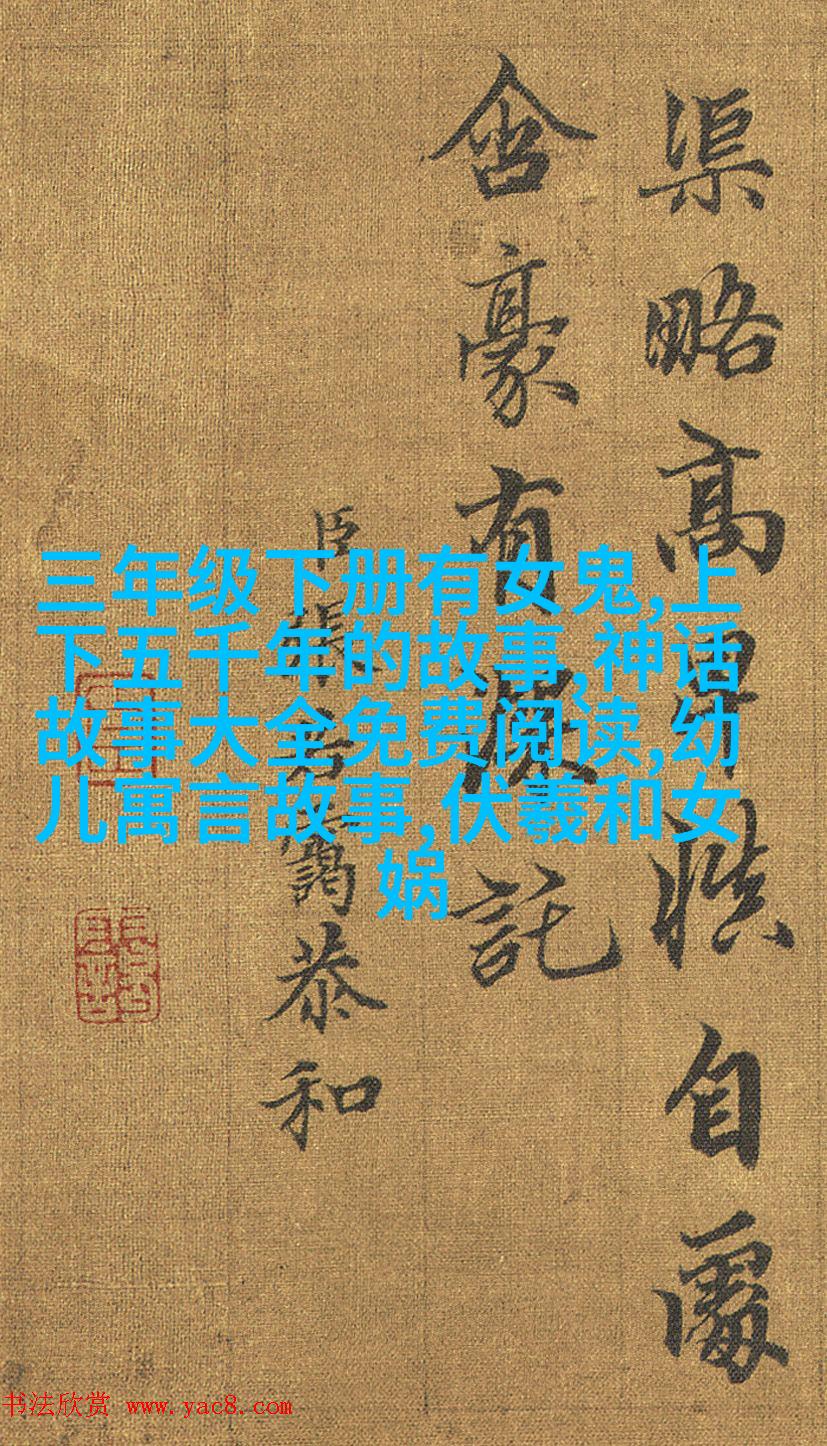 渠略高卑慎自處
含豪有深託
臣張若靄恭和
三年级下册有女鬼,上
下五千年的故事,神话
故事大全免费阅读,幼
儿寓言故事,伏羲和女
娲
书法欣赏 www.yac8.com